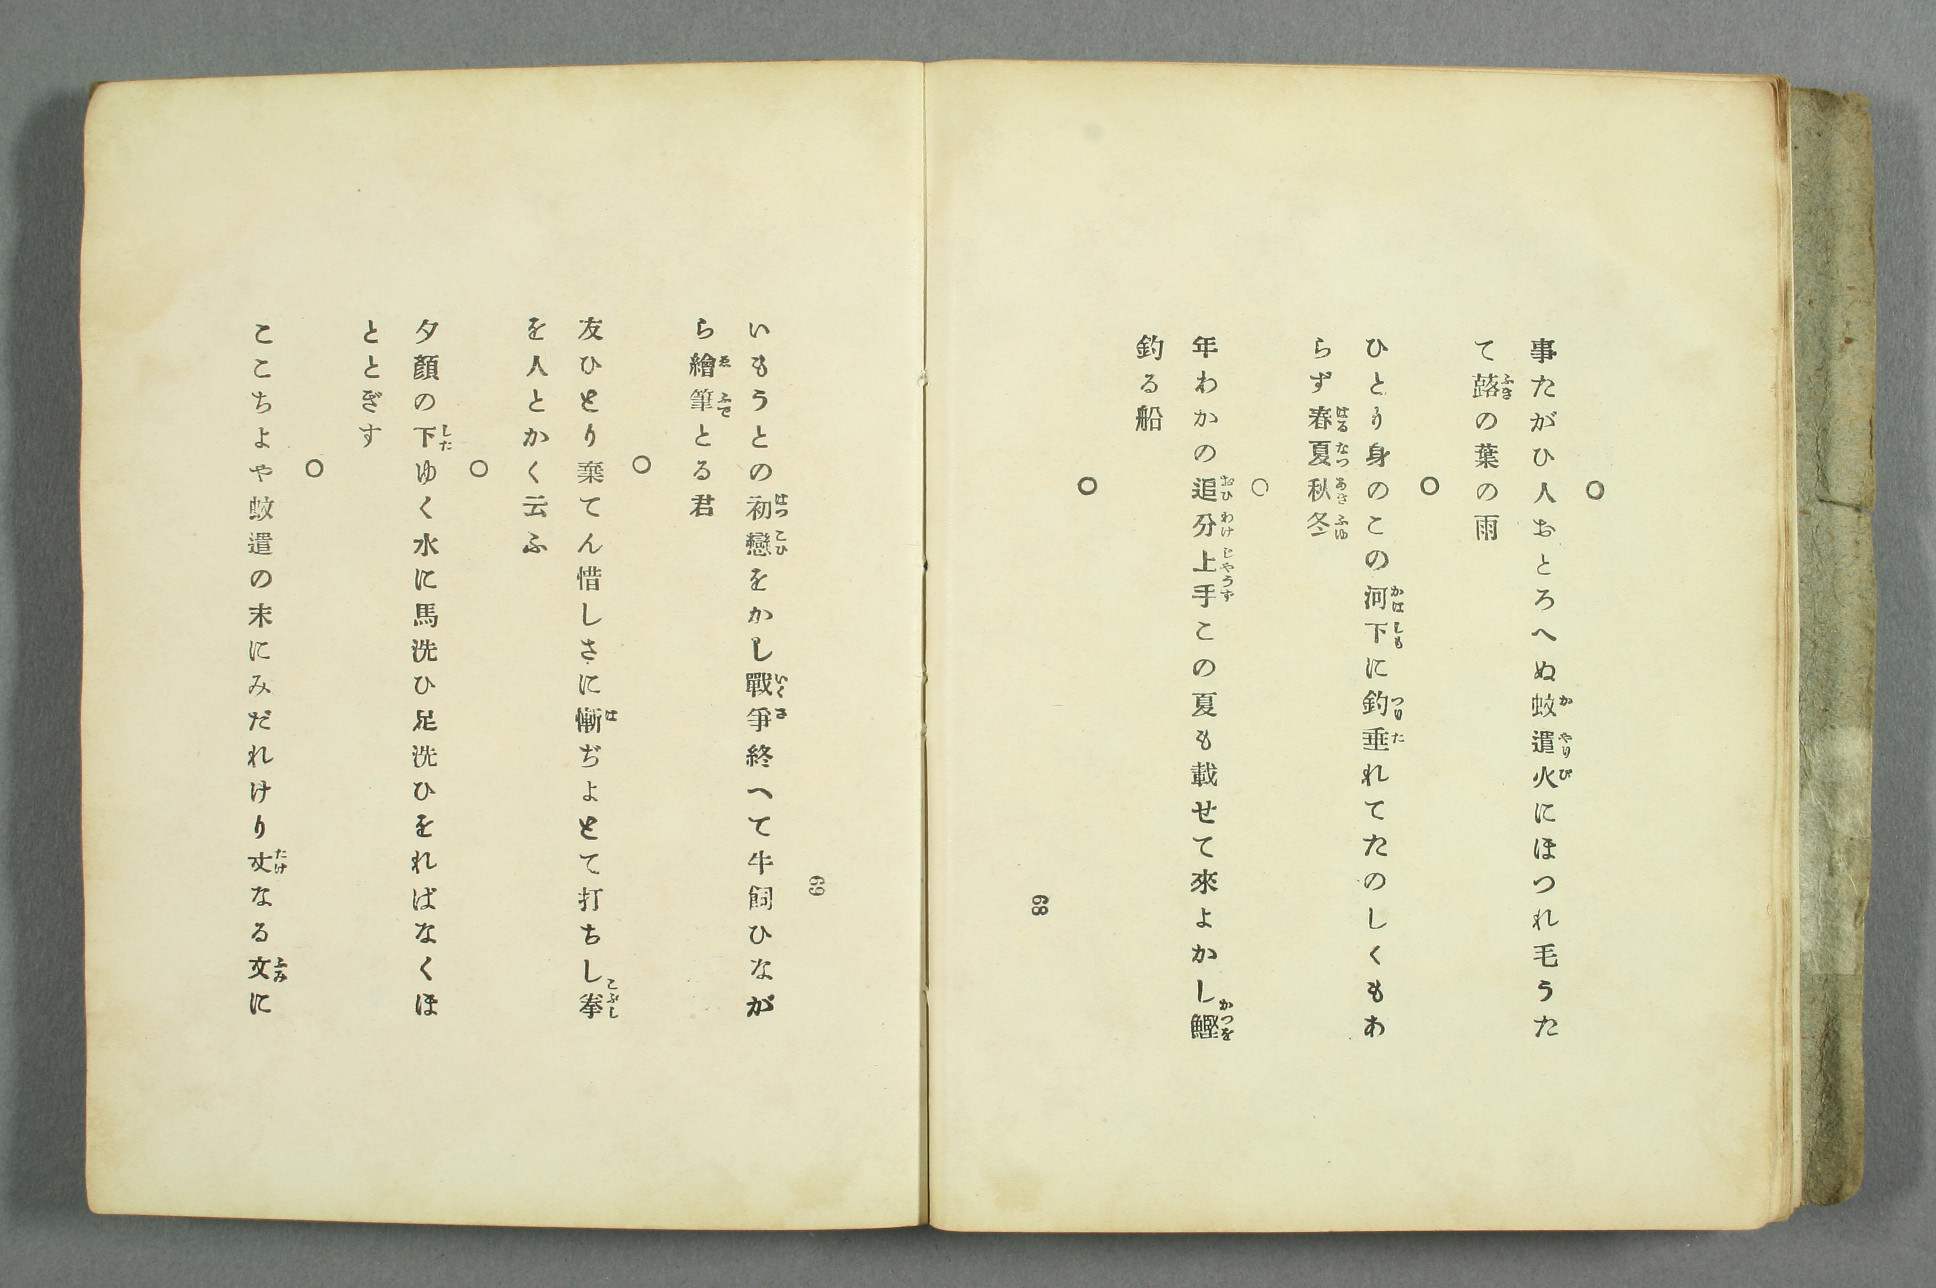 ○
事たがひ人おとろへぬ蚊遣火にほつれ毛うた
て蕗の葉の雨
○
ひとり身のこの河下に釣垂れてたのしくもあ
らず春夏秋冬
○
年わかの追分上手この夏も載せて來よかし鰹
釣る船
○
68
69
いもうとの初戀をかし戰爭終へて牛飼ひなが
ら繪筆とる君
○
友ひとり棄てん惜しさに慚ぢよとて打ちし拳
を人とかく云ふ
○
夕顏の下ゆく水に馬洗ひ足洗ひをればなくほ
ととぎす
○
こころよや蚊遣の末にみだれけり丈なる文に